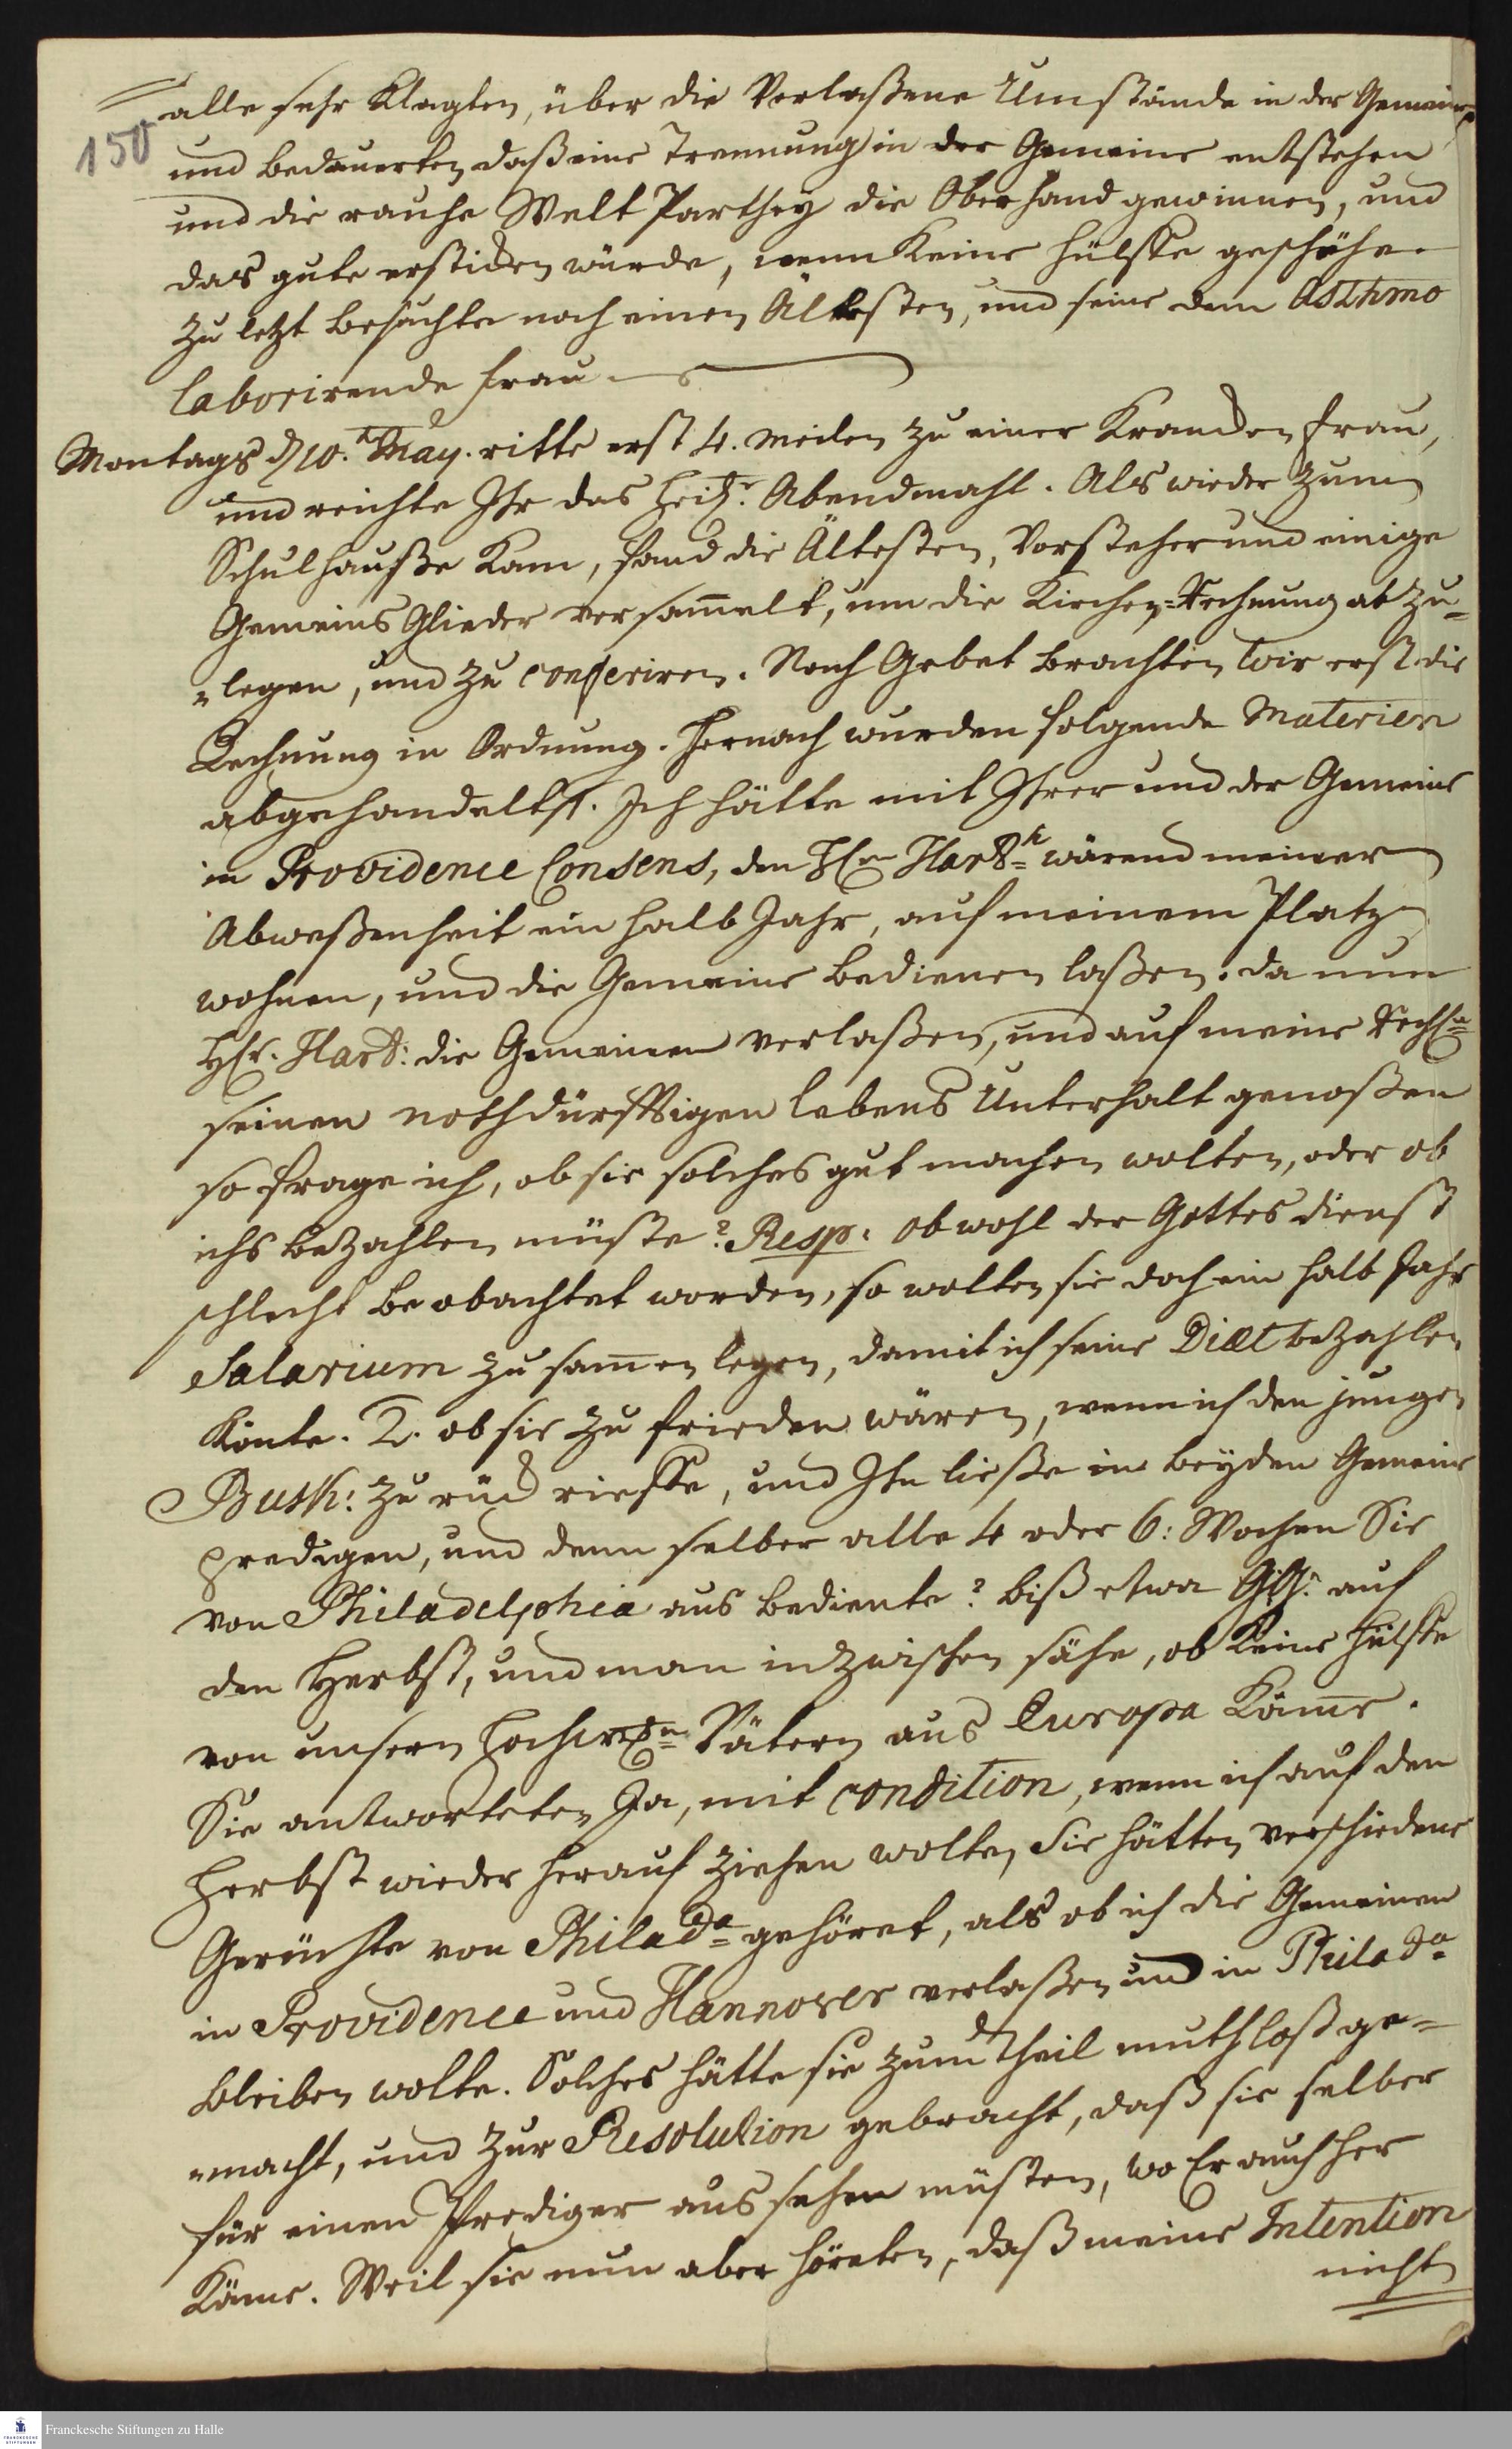 150
alle sehr Klagten, über die Verlaßene Umstände in der Gemeine
und bedauerten daß eine Trennung in der Gemeine entstehen
und die rauhe Welt Parthey die Oberhand gewinnen, und
das gute ersticken würde, wenn keine Hülffe geschähe
Zu letzt besuchte noch einen Ältesten, und seine dem Asthmo
laborirende Frau
Montags d 10.t May. ritte erst 4. Meilen zu einer Krancken Frau,
und reichte Ihr das Heilr. Abendmahl. Als wieder zum
Schulhauße Kam, fand die Ältesten, Vorsteher und einige
Gemeins Glieder versam̄elt, um die Kirchen-Rechnung ab zu-
-legen, und zu conferiren. Nach Gebet brachten wir erst die
Rechnung in Ordnung. Hernach wurden folgende Materien
abgehandelt 1. Ich hätte mit Ihrer und der Gemeine
in Providence Consens, den HEn Hartwh wärend meiner
Abweßenheit ein halb Jahr, auf meinem Platz
wohnen, und die Gemeine bedienen laßen. da nun
HEr. Hart: die Gemeinen verlaßen, und auf meine Rech
seinen nothdürfftigen lebens Unterhalt genoßen
so frage ich, ob sie solches gut machen wolten, oder ob
ichs bezahlen müste? Resp: obwohl der Gottes dienst
schlecht beobachtet worden, so wolten sie doch ein halb Jahr
Salarium zu sam̄en legen, damit ich seine Diæt bezahlen
Könte. 2. ob sie zu frieden wären, wenn ich den jungen
Busk: zu rück rieffe, und Ihn ließe in beyden Gemeine
predigen, und denn selber alle 4 oder 6: Wochen Sie
von Philadelphia aus bediente? biß etwa auf
den Herbst, und man indzwischen sähe, ob keine Hülffe
von unsern Hochw Vätern aus Europa Käme.
Sie antworteten Ja, mit condition, wenn ich auf den
Herbst wieder herauf ziehen wolte, Sie hätten verschiedene
Gerüchte von Philada gehöret, als ob ich die Gemeinen
in Providence und Hannover verlaßen und in Philada
bleiben wolte. Solches hätte sie zum Theil muthloß ge-
-macht, und zur Resolution gebracht, daß sie selber
für einen Prediger aus sehen müsten, wo Er auch her
Käme. Weil sie nun aber höreten, daß meine Intention
nicht
Franckesche Stiftungen zu Halle